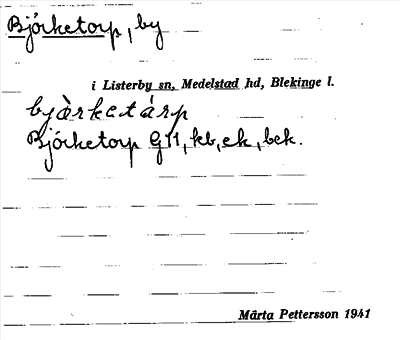 Björketorp, by
i Listerby sn, Medelstad hd, Blekinge l.
byàrketárp
Björketorp GH, kb, ek, bek.
Märta Pettersson 1941